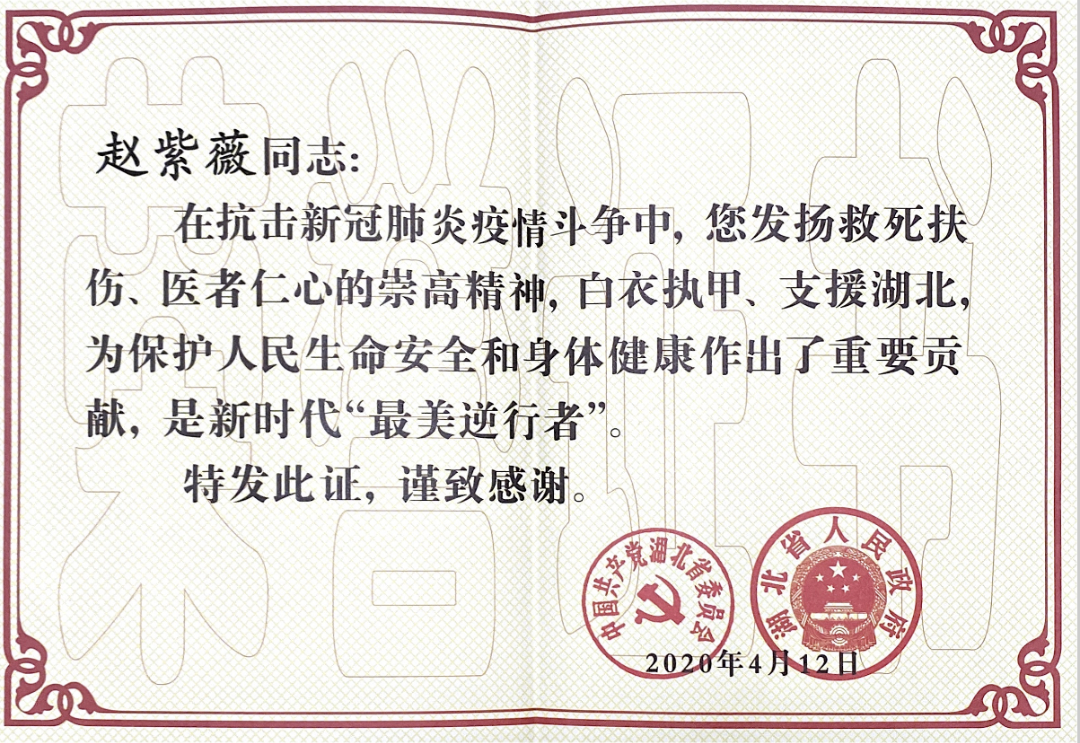 赵紫薇同志:
在抗击新冠肺炎疫情斗争中,您发扬救死扶
伤、医者仁心的崇高精神,白衣执甲、支援湖北,
为保护人民生命安全和身体健康作出了重要贡
献,是新时代“最美逆行者”。
特发此证,谨致感谢。
中国共产党湖北省委员会
湖北省人民政府
2020年4月12日
荣誉证书